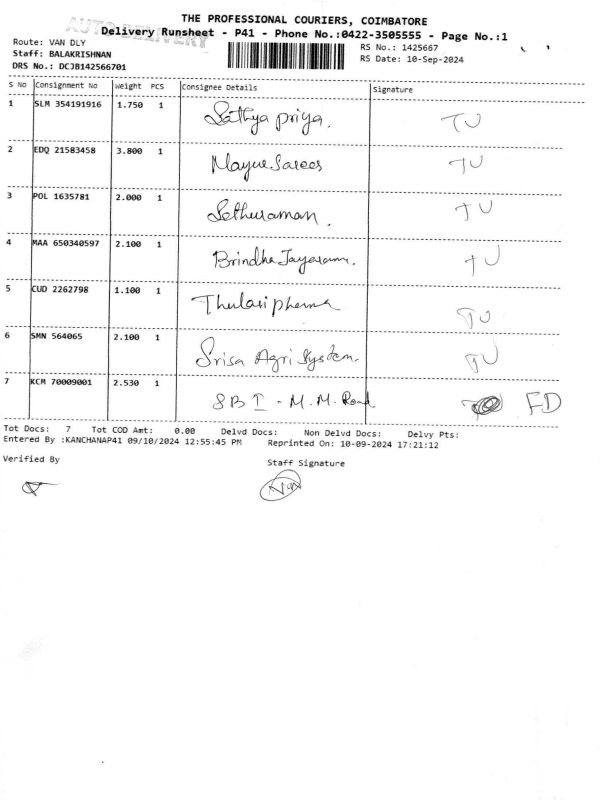 THE PROFESSIONAL COURIERS, COIMBATORE
AUTO DELIVERY
Delivery Runsheet - P41 - Phone No.:0422-3505555 - Page No.:1
Route: VAN DLY
RS No.: 1425667
Staff: BALAKRISHNAN
RS Date: 10-Sep-2024
DRS No.: DCJB142566701
S No Consignment No Weight PCS Consignee Details Signature
1 SLM 354191916 1.750 1 Sathya priya. TU
2 EDQ 21583458 3.800 1 Mayur Sarees TU
3 POL 1635781 2.000 1 Sethuraman. TU
4 MAA 650340597 2.100 1 Brindha Jayaram. TU
5 CUD 2262798 1.100 1 Thulasi pharma TU
6 SMN 564065 2.100 1 Srisa Agri System. TU
7 KCM 70009001 2.530 1 SBI - M.M. Road FD
Tot Docs: 7 Tot COD Amt: 0.00 Delvd Docs: Non Delvd Docs: Delvy Pts:
Entered By :KANCHANAP41 09/10/2024 12:55:45 PM Reprinted On: 10-09-2024 17:21:12
Verified By Staff Signature